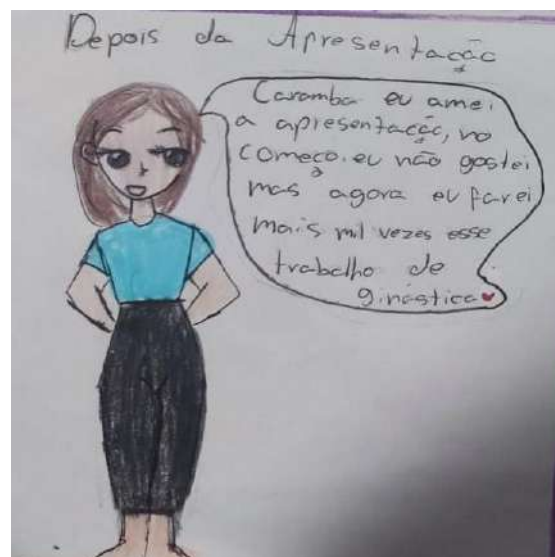 Depois da Apresentação
Caramba eu amei
a apresentação, no
começo. eu não gostei
mas agora eu farei
mais mil vezes esse
trabalho de
ginástica